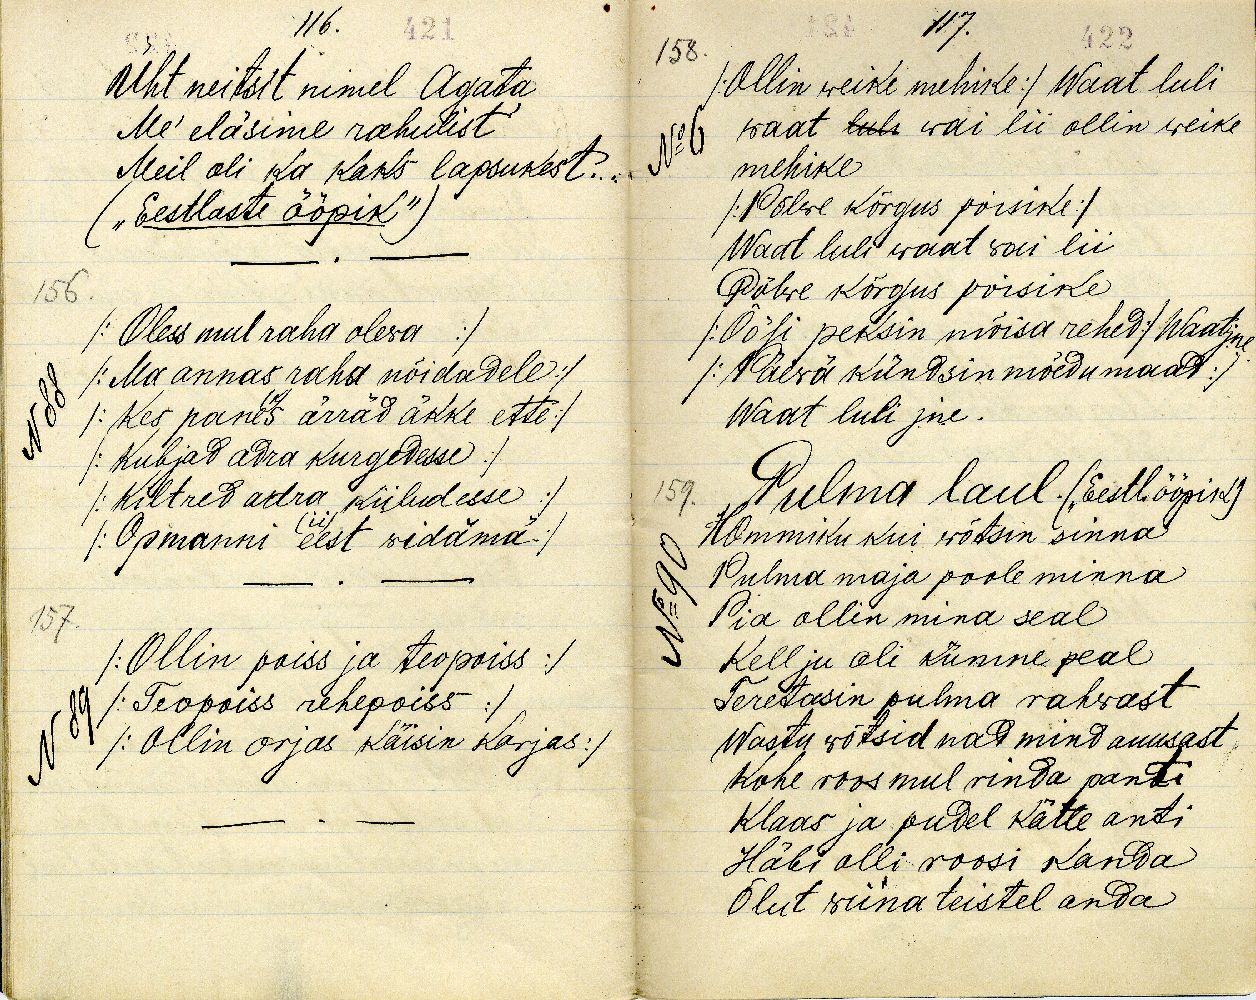 116.
421
Üht neitsit nimel Agata
Me' eläsime rahulist'
Meil oli ka kaks lapsukest...
(„Eestlaste ööpik")
156.
N 88
/: Oless mul raha olewa :/
/: Ma annas raha nõidadele :/
/: Kes panes ärräd äkke ette :/
/: Kubjad adra kurgedesse :/
/: Kiltred adra küiludesse :/
/: Opmanni eest widämä :/
(ii)
157.
N 89
/: Ollin poiss ja teopoiss :/
/: Teopoiss rehepoiss :/
/: Ollin orjas käisin karjas :/
117.
422
158.
№ 6
/: Ollin weike mehike :/ Waat luli
waat luli wai lii ollin weike
mehike
/: Põlwe kõrgus poisike :/
Waat luli waat wai lii
Põlwe kõrgus poisike
/: Öösi peksin mõisa rehed :/ Waat jne
/: Päiwä kündsin mõedumaad :/
Waat luli jne.
159.
Pulma laul. („Eestl. ööpik")
№ 90
Hommiku kui wõtsin sinna
Pulma maja poole minna
Pia ollin mina seal
Kell ju oli kümne peal
Teretasin pulma rahwast
Wastu wõtsid nad mind auusast
Kohe roos mul rinda pandi
Klaas ja pudel kätte anti
Häbi olli roosi kanda
Õlut wiina teistel anda